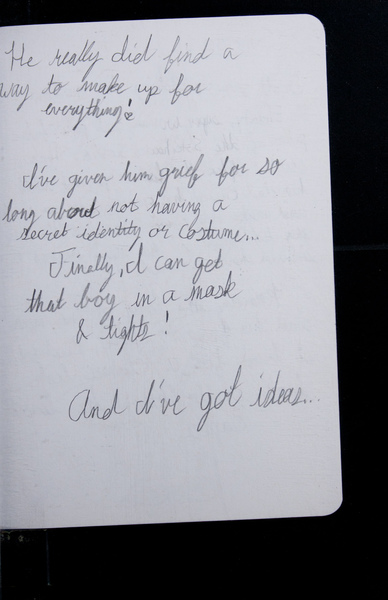 He really did find a
way to make up for
everything!
I've given him grief for so
long about not having a
secret identity or costume...
Finally, I can get
that boy in a mask
& tights!
And I've got ideas...